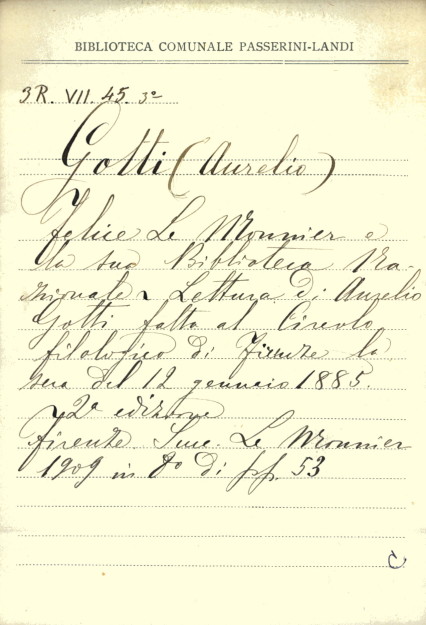 BIBLIOTECA COMUNALE PASSERINI-LANDI
3R. VII. 45. 3º
Gotti (Aurelio)
Felice Le Monnier e
la sua Biblioteca Na-
zionale ~ Lettura di Aurelio
Gotti fatta al Circolo
filologico di Firenze la
sera del 12 gennaio 1885.
~ 2ª edizione
Firenze. Succ. Le Monnier
1909 in 8º di pp. 53
C